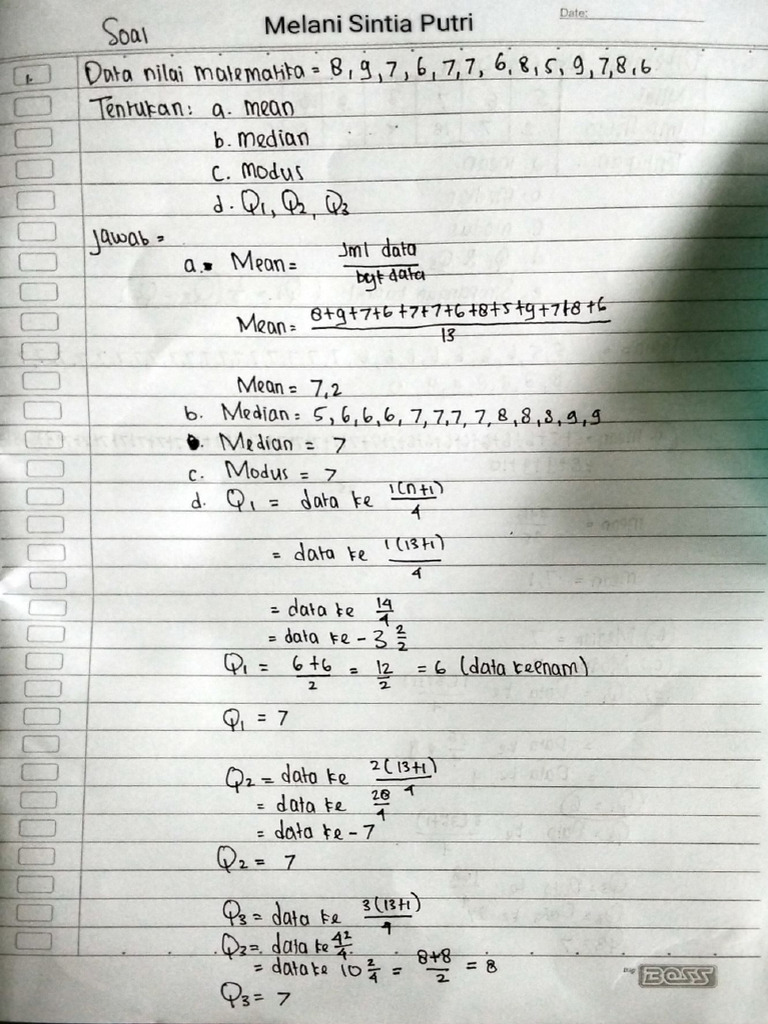 Soal
Melani Sintia Putri
Date:
1. Data nilai matematika = 8, 9, 7, 6, 7, 7, 6, 8, 5, 9, 7, 8, 6
Tentukan: a. mean
b. median
c. Modus
d. Q1, Q2, Q3
Jawab =
a. Mean = Jml data / bgk data
Mean = 8+9+7+6+7+7+6+8+5+9+7+8+6 / 13
Mean = 7,2
b. Median = 5, 6, 6, 6, 7, 7, 7, 7, 8, 8, 8, 9, 9
Median = 7
c. Modus = 7
d. Q1 = data ke 1(n+1) / 4
= data ke 1(13+1) / 4
= data ke 14/4
= data ke - 3 2/2
Q1 = 6+6 / 2 = 12/2 = 6 (data keenam)
Q1 = 7
Q2 = data ke 2(13+1) / 4
= data ke 28/4
= data ke - 7
Q2 = 7
Q3 = data ke 3(13+1) / 4
Q3 = data ke 42/4
= data ke 10 2/4 = 8+8 / 2 = 8
Q3 = 7
BOSS